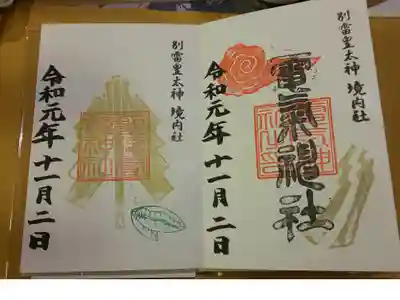 別雷皇太神 境内社
電氣神社
令和元年十一月二日
別雷皇太神 境内社
令和元年十一月二日